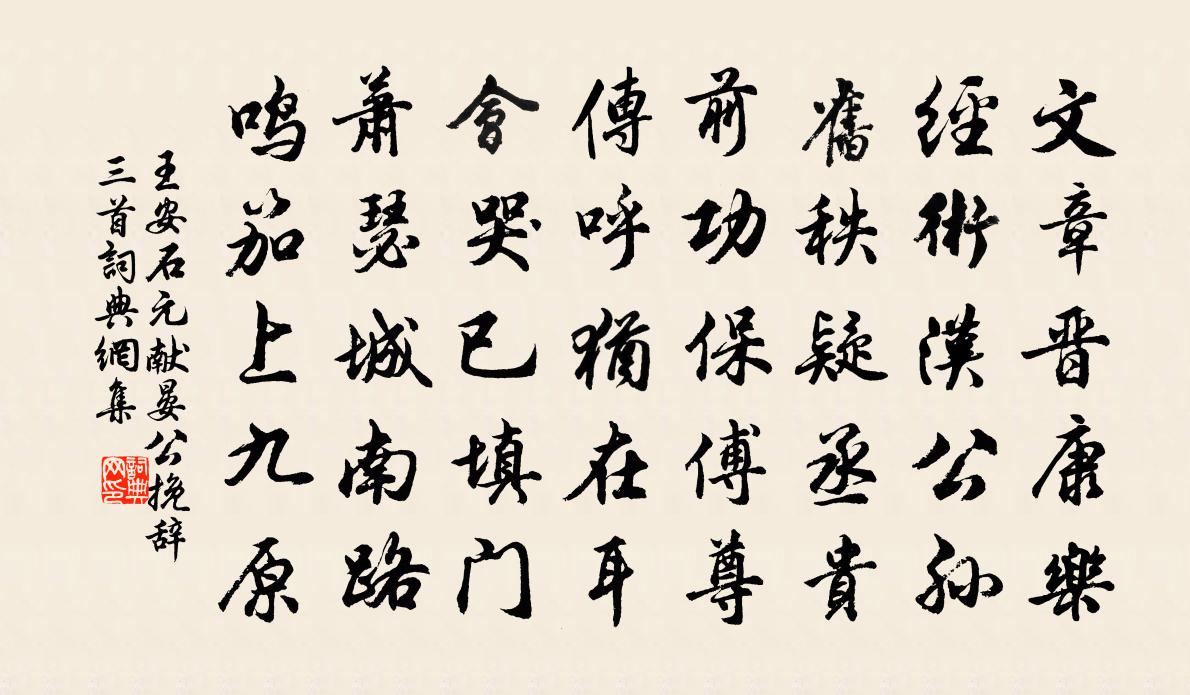 文章晋康樂
經術漢公孫
舊秩疑丞貴
前功保傅尊
傳呼猶在耳
會哭已填门
萧瑟城南路
鸣笳上九原
王安石元献晏公挽辞
三首詞典網集
詞典网印